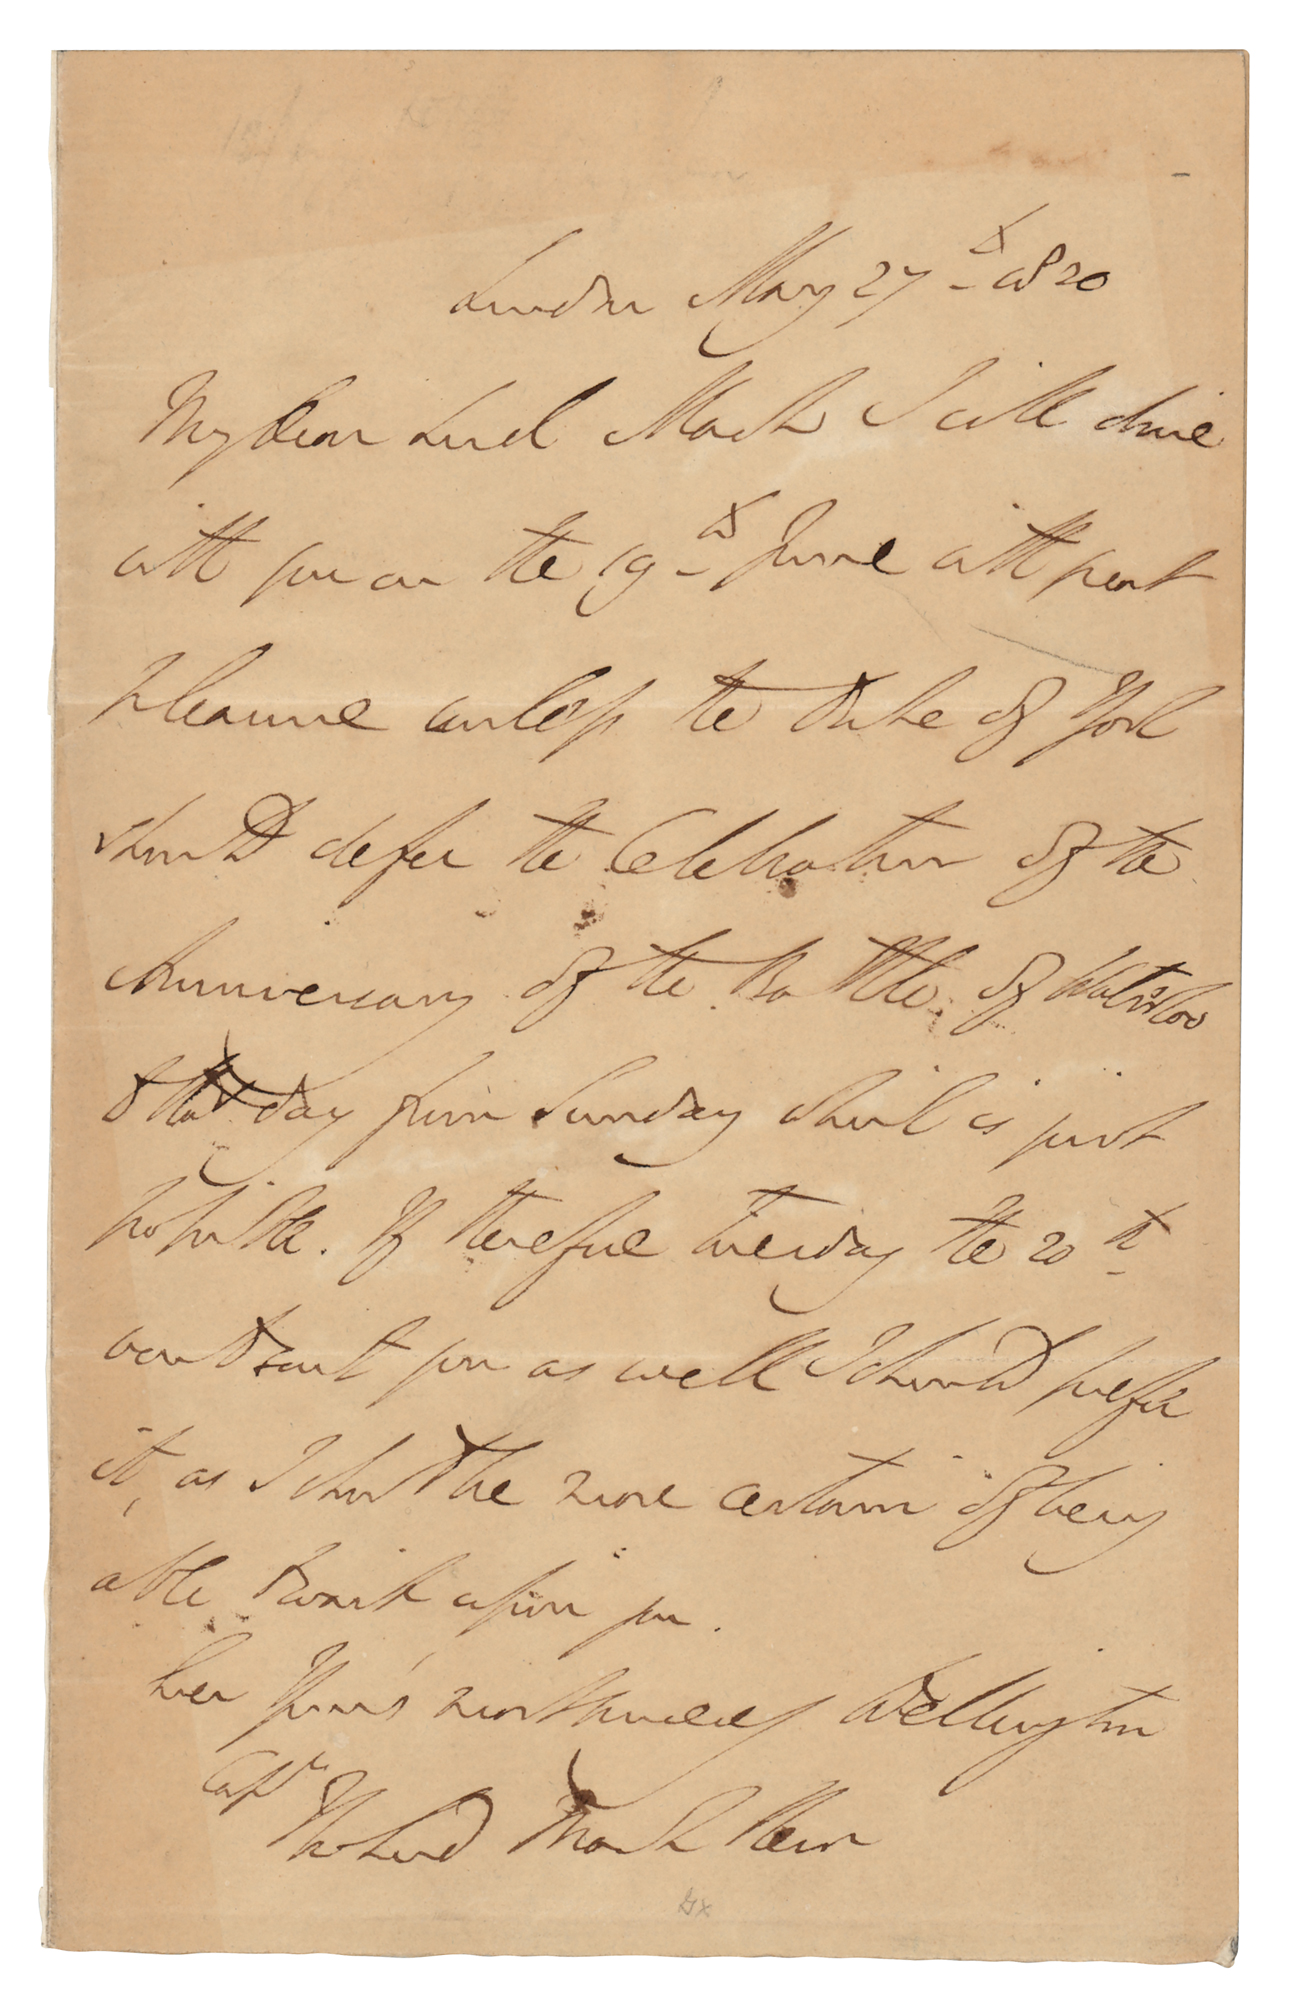 London May 27th 1820
My Dear Lord Mark I will dine
with you on the 19th June with great
pleasure unless the Duke of York
should defer the Celebration of the
Anniversary of the Battle of Waterloo
to that day from Sunday which is just
possible. If therefore Tuesday the 20th
would suit you as well I should prefer
it, as I should be more certain of being
able to wait upon you.
Ever Yours most sincerely Wellington
The Lord Mark Kerr